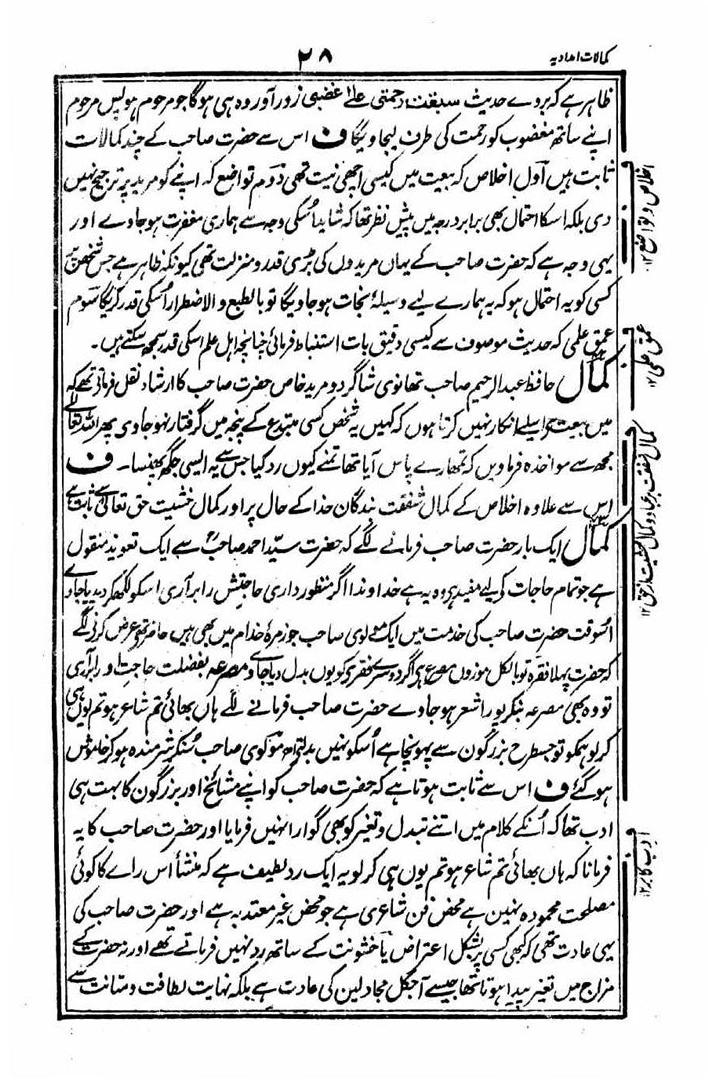 کمالات امدادیہ
۲۸
ظاہر ہے کہ بروے حدیث سبقت رحمتی علے غضبی زور آور وہ ہی ہوگا جو مرحوم ہو پس مرحوم
اپنے ساتھ مغضوب کو رحمت کی طرف لیجاویگا ف اس سے حضرت صاحب کے چند کمالات
ثابت ہیں اول اخلاص کہ بیعت میں کیسی اچھی نیت تھی دوم تواضع کہ اپنے کو مرید پر ترجیح نہیں
دی بلکہ اسکا احتمال بھی برابر درجہ میں پیش نظر تھا کہ شاید اُسکی وجہ سے ہماری مغفرت ہوجاوے اور
یہی وجہ ہے کہ حضرت صاحب کے یہاں مریدوں کی بڑی قدر و منزلت تھی کیونکہ ظاہر ہے جس شخص میں
کسی کو یہ احتمال ہو کہ یہ ہمارے لیے وسیلۂ نجات ہوجاویگا تو بالطبع و الاضطرار اُسکی قدر کریگا سوم
عمق علمی کہ حدیث موصوف سے کیسی دقیق بات استنباط فرمائی چنانچہ اہل علم اسکی قدر سمجھ سکتے ہیں۔
کمال حافظ عبدالرحیم صاحب تھانوی شاگرد و مرید خاص حضرت صاحب کا ارشاد نقل فرماتی تھے کہ
میں بیعت سے اسلیے انکار نہیں کرتا ہوں کہ کہیں یہ شخص کسی مبتدع کے پنجہ میں گرفتار نہوجاوی پھر اللہ تعالے
مجھ سے مواخذہ فرماویں کہ تمھارے پاس آیا تھا تمنے کیوں رد کیا جس سے یہ ایسی جگہ پھنسا۔ ف
اس سے علاوہ اخلاص کے کمال شفقت بندگان خدا کے حال پر اور کمال خشیت حق تعالی سے ثابت ہے
کمال ایک بار حضرت صاحب فرمانے لگے کہ حضرت سید احمد صاحبؒ سے ایک تعویذ منقول
ہے جو تمام حاجات کے لیے مفید ہی وہ یہ ہے خداوندا اگر منظور داری حاجتش را برآری اسکو لکھکر دیدیا جاوے
اُسوقت حضرت صاحب کی خدمت میں ایک مولوی صاحب جو زمرۂ خدام میں بھی ہیں حاضر تھے عرض کرنے لگے
کہ حضرت پہلا فقرہ تو بالکل موزوں مصرع ہی اگر دوسرے فقرے کو یوں بدل دیا جاوے مصرعہ بفضلت حاجت او را برآری
تو وہ بھی مصرعہ بنکر پورا شعر ہوجاوے حضرت صاحب فرمانے لگے ہاں بھائی تم شاعر ہو تم یوں ہی
کرلو ہمکو تو جسطرح بزرگون سے پہونچا ہے اُسکو نہیں بدلتے وہ مولوی صاحب سُنکر شرمندہ ہو کر خاموش
ہوگئے ف اس سے ثابت ہوتا ہے کہ حضرت صاحب کو اپنے مشائخ اور بزرگون کا بہت ہی
ادب تھا کہ اُنکے کلام میں اتنے تبدل و تغیر کو بھی گوارا نہیں فرمایا اور حضرت صاحب کا یہ
فرمانا کہ ہاں بھائی تم شاعر ہو تم یوں ہی کرلو یہ ایک رد لطیف ہے کہ منشأ اس رائے کا کوئی
مصلحت محمودہ نہین ہے محض فن شاعری ہے جو محض غیر معتد بہ ہے اور حضرت صاحب کی
یہی عادت تھی کہ کبھی کسی پر بشکل اعتراض یا خشونت کے ساتھ رد نہیں فرماتے تھے اور نہ حضرت کے
مزاج میں تغیر پیدا ہوتا تھا جیسے آجکل مجادلین کی عادت ہے بلکہ نہایت لطافت و متانت سے
اخلاص و تواضع ۱۲
عمق علمی ۱۲
کمال شفقت بر عباد و کمال خشیت از حق ۱۲
ادب اکابر ۱۲